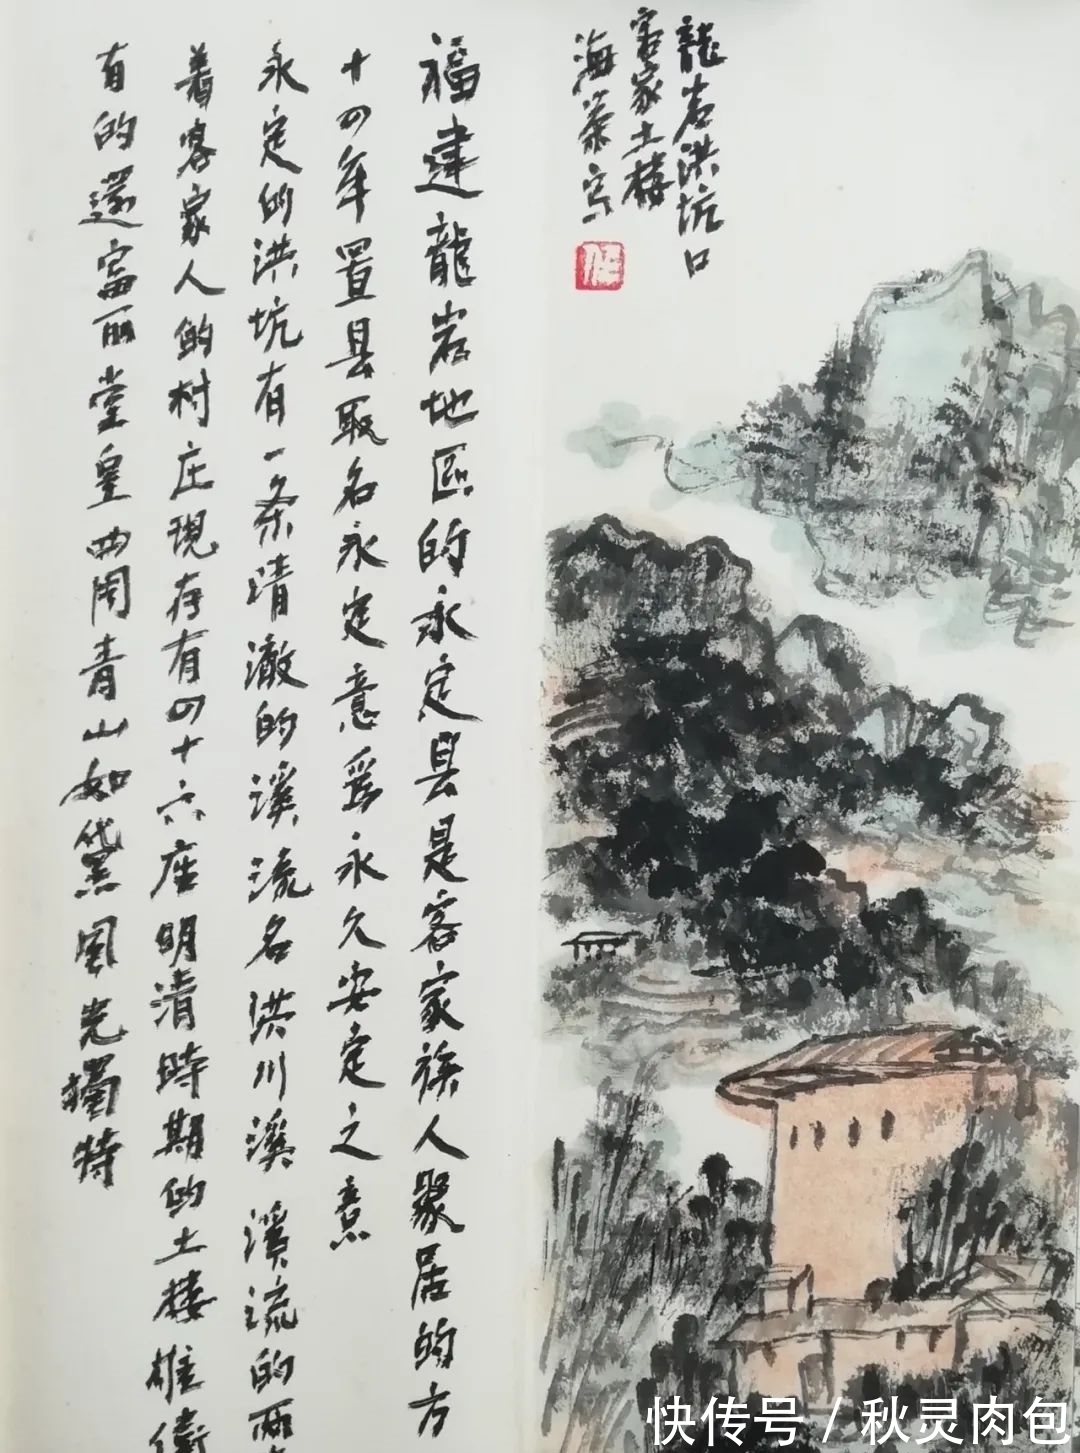 龍岩洪坑口
客家土楼
海萊写
福建龍岩地區的永定县是客家族人聚居的方
十四年置县取名永定意爲永久安定之意
永定的洪坑有一条清澈的溪流名洪川溪溪流的兩
着客家人的村庄現存有四十六座明清時期的土楼雄
有的還富丽堂皇四周青山如黛風光獨特
快传号 / 秋灵肉包